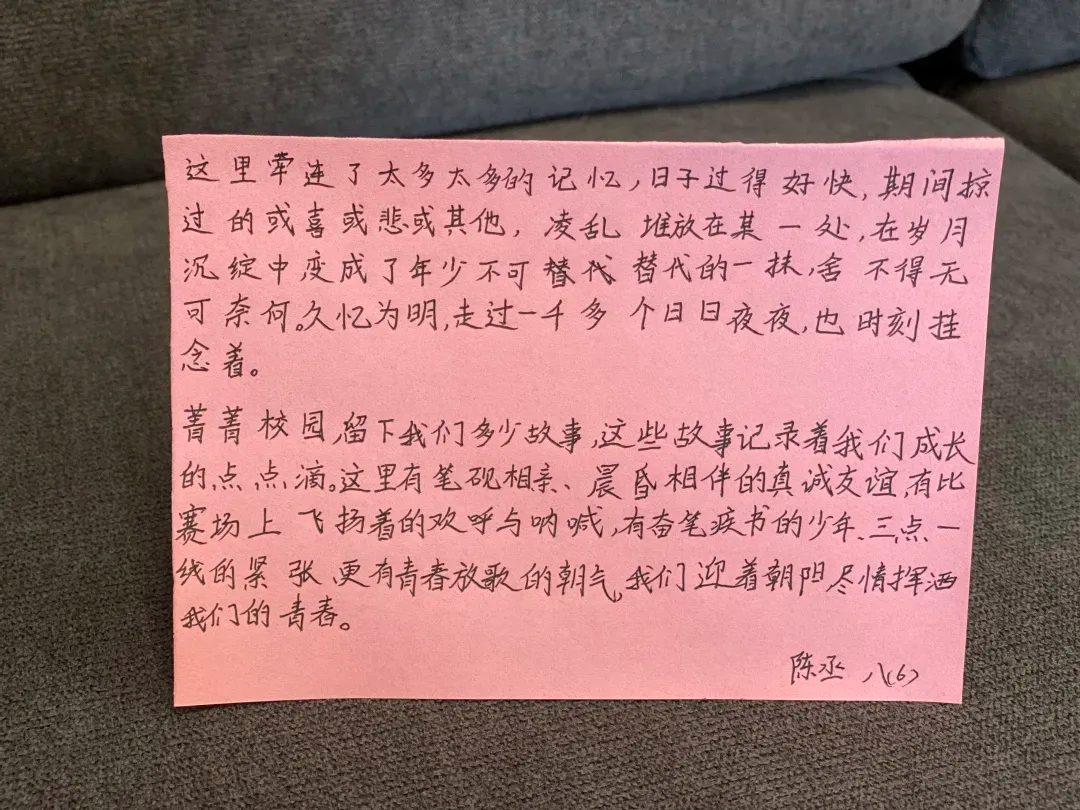 这里牵连了太多太多的记忆,日子过得好快,期间掠
过的或喜或悲或其他,凌乱堆放在某一处,在岁月
沉绽中变成了年少不可替代替代的一抹,舍不得无
可奈何。久忆为明,走过一千多个日日夜夜,也时刻挂
念着。
菁菁校园,留下我们多少故事,这些故事记录着我们成长
的点点滴。这里有笔砚相亲、晨昏相伴的真诚友谊,有比
赛场上飞扬着的欢呼与呐喊,有奋笔疾书的少年、三点一
线的紧张,更有青春放歌的朝气。我们迎着朝阳尽情挥洒
我们的青春。
陈丞 八(6)